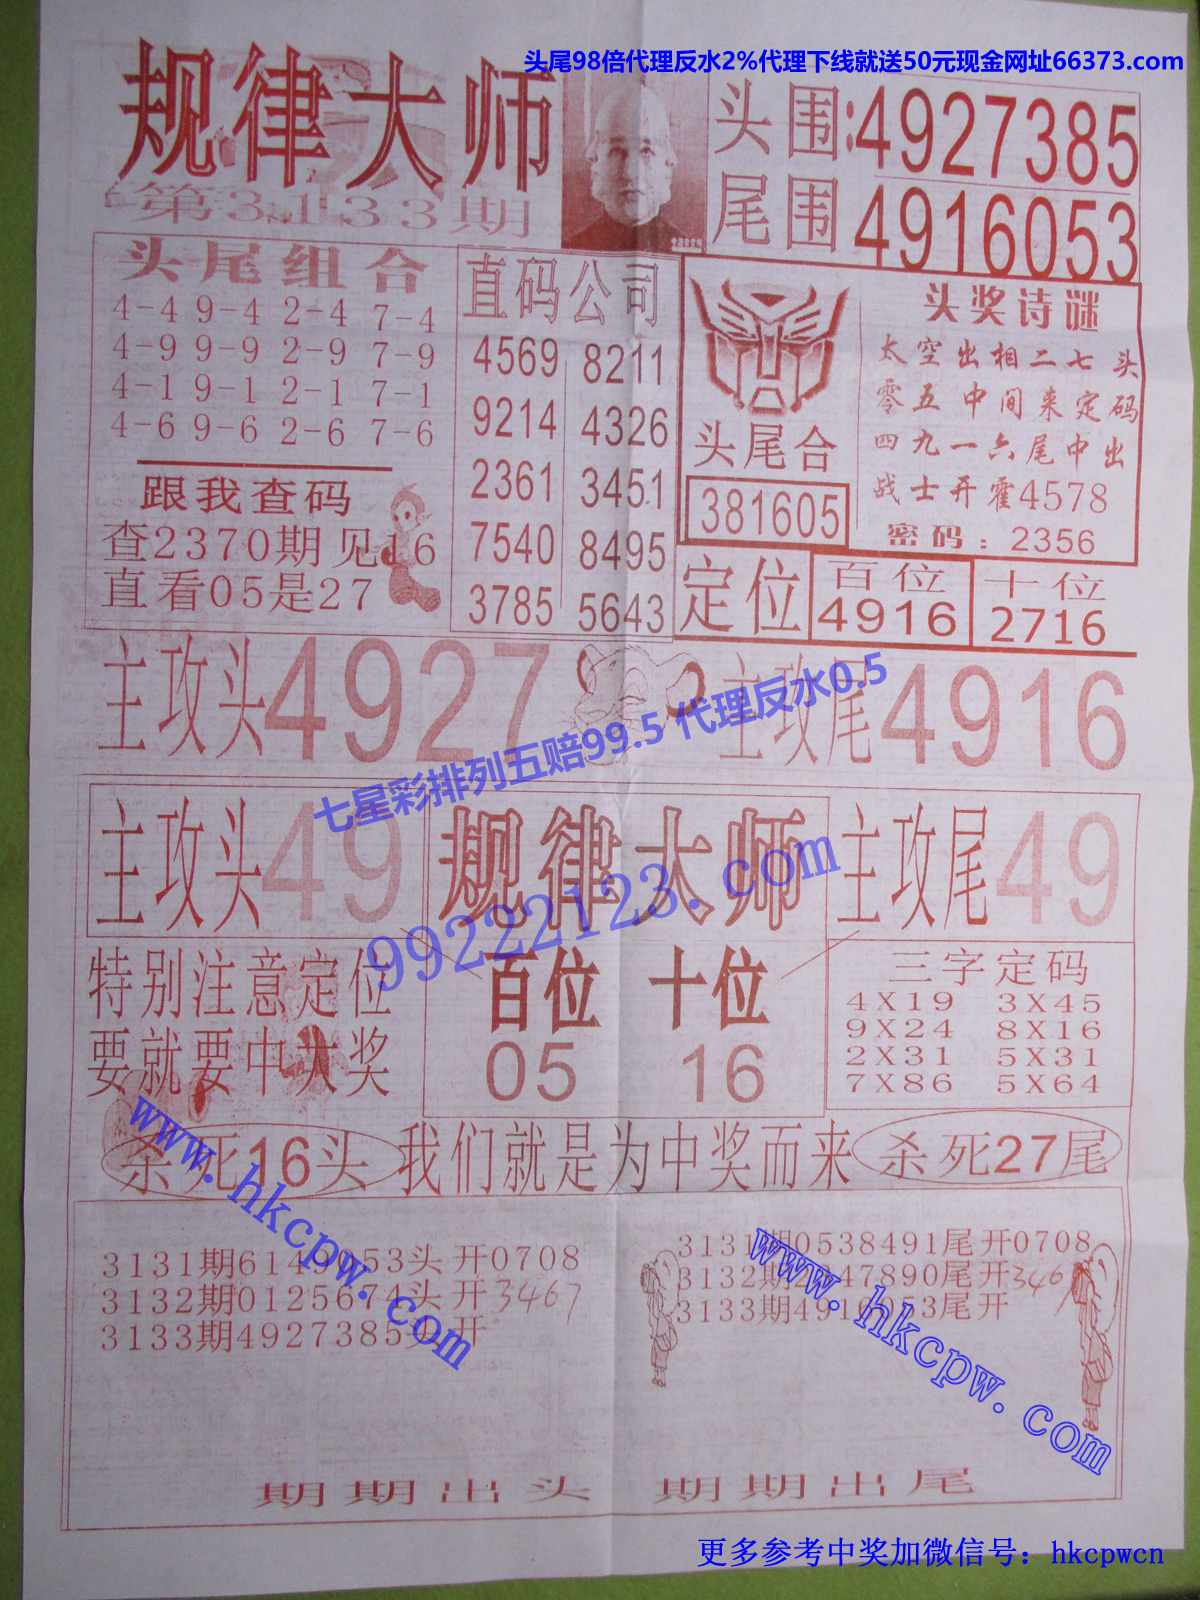 头尾98倍代理反水2%代理下线就送50元现金网址66373.com
规律大师
第3133期
头围:4927385
尾围4916053
头尾组合
4-4 9-4 2-4 7-4
4-9 9-9 2-9 7-9
4-1 9-1 2-1 7-1
4-6 9-6 2-6 7-6
跟我查码
查2370期见16
直看05是27
直码公司
4569 8211
9214 4326
2361 3451
7540 8495
3785 5643
头尾合
381605
头奖诗谜
太空出相二七头
零五中间来定码
四九一六尾中出
战士开霍4578
密码:2356
定位
百位
4916
十位
2716
主攻头4927
主攻尾4916
七星彩排列五赔99.5 代理反水0.5
主攻头49
规律大师
主攻尾49
99222123.com
特别注意定位
要就要中大奖
百位 十位
05 16
三字定码
4X19 3X45
9X24 8X16
2X31 5X31
7X86 5X64
杀死16头
我们就是为中奖而来
杀死27尾
www.hkcpw.com
www.hkcpw.com
3131期6149053头开0708
3132期0125674头开3467
3133期4927385头开
3131期0538491尾开0708
3132期2347890尾开3467
3133期4916053尾开
期期出头
期期出尾
更多参考中奖加微信号：hkcpwcn